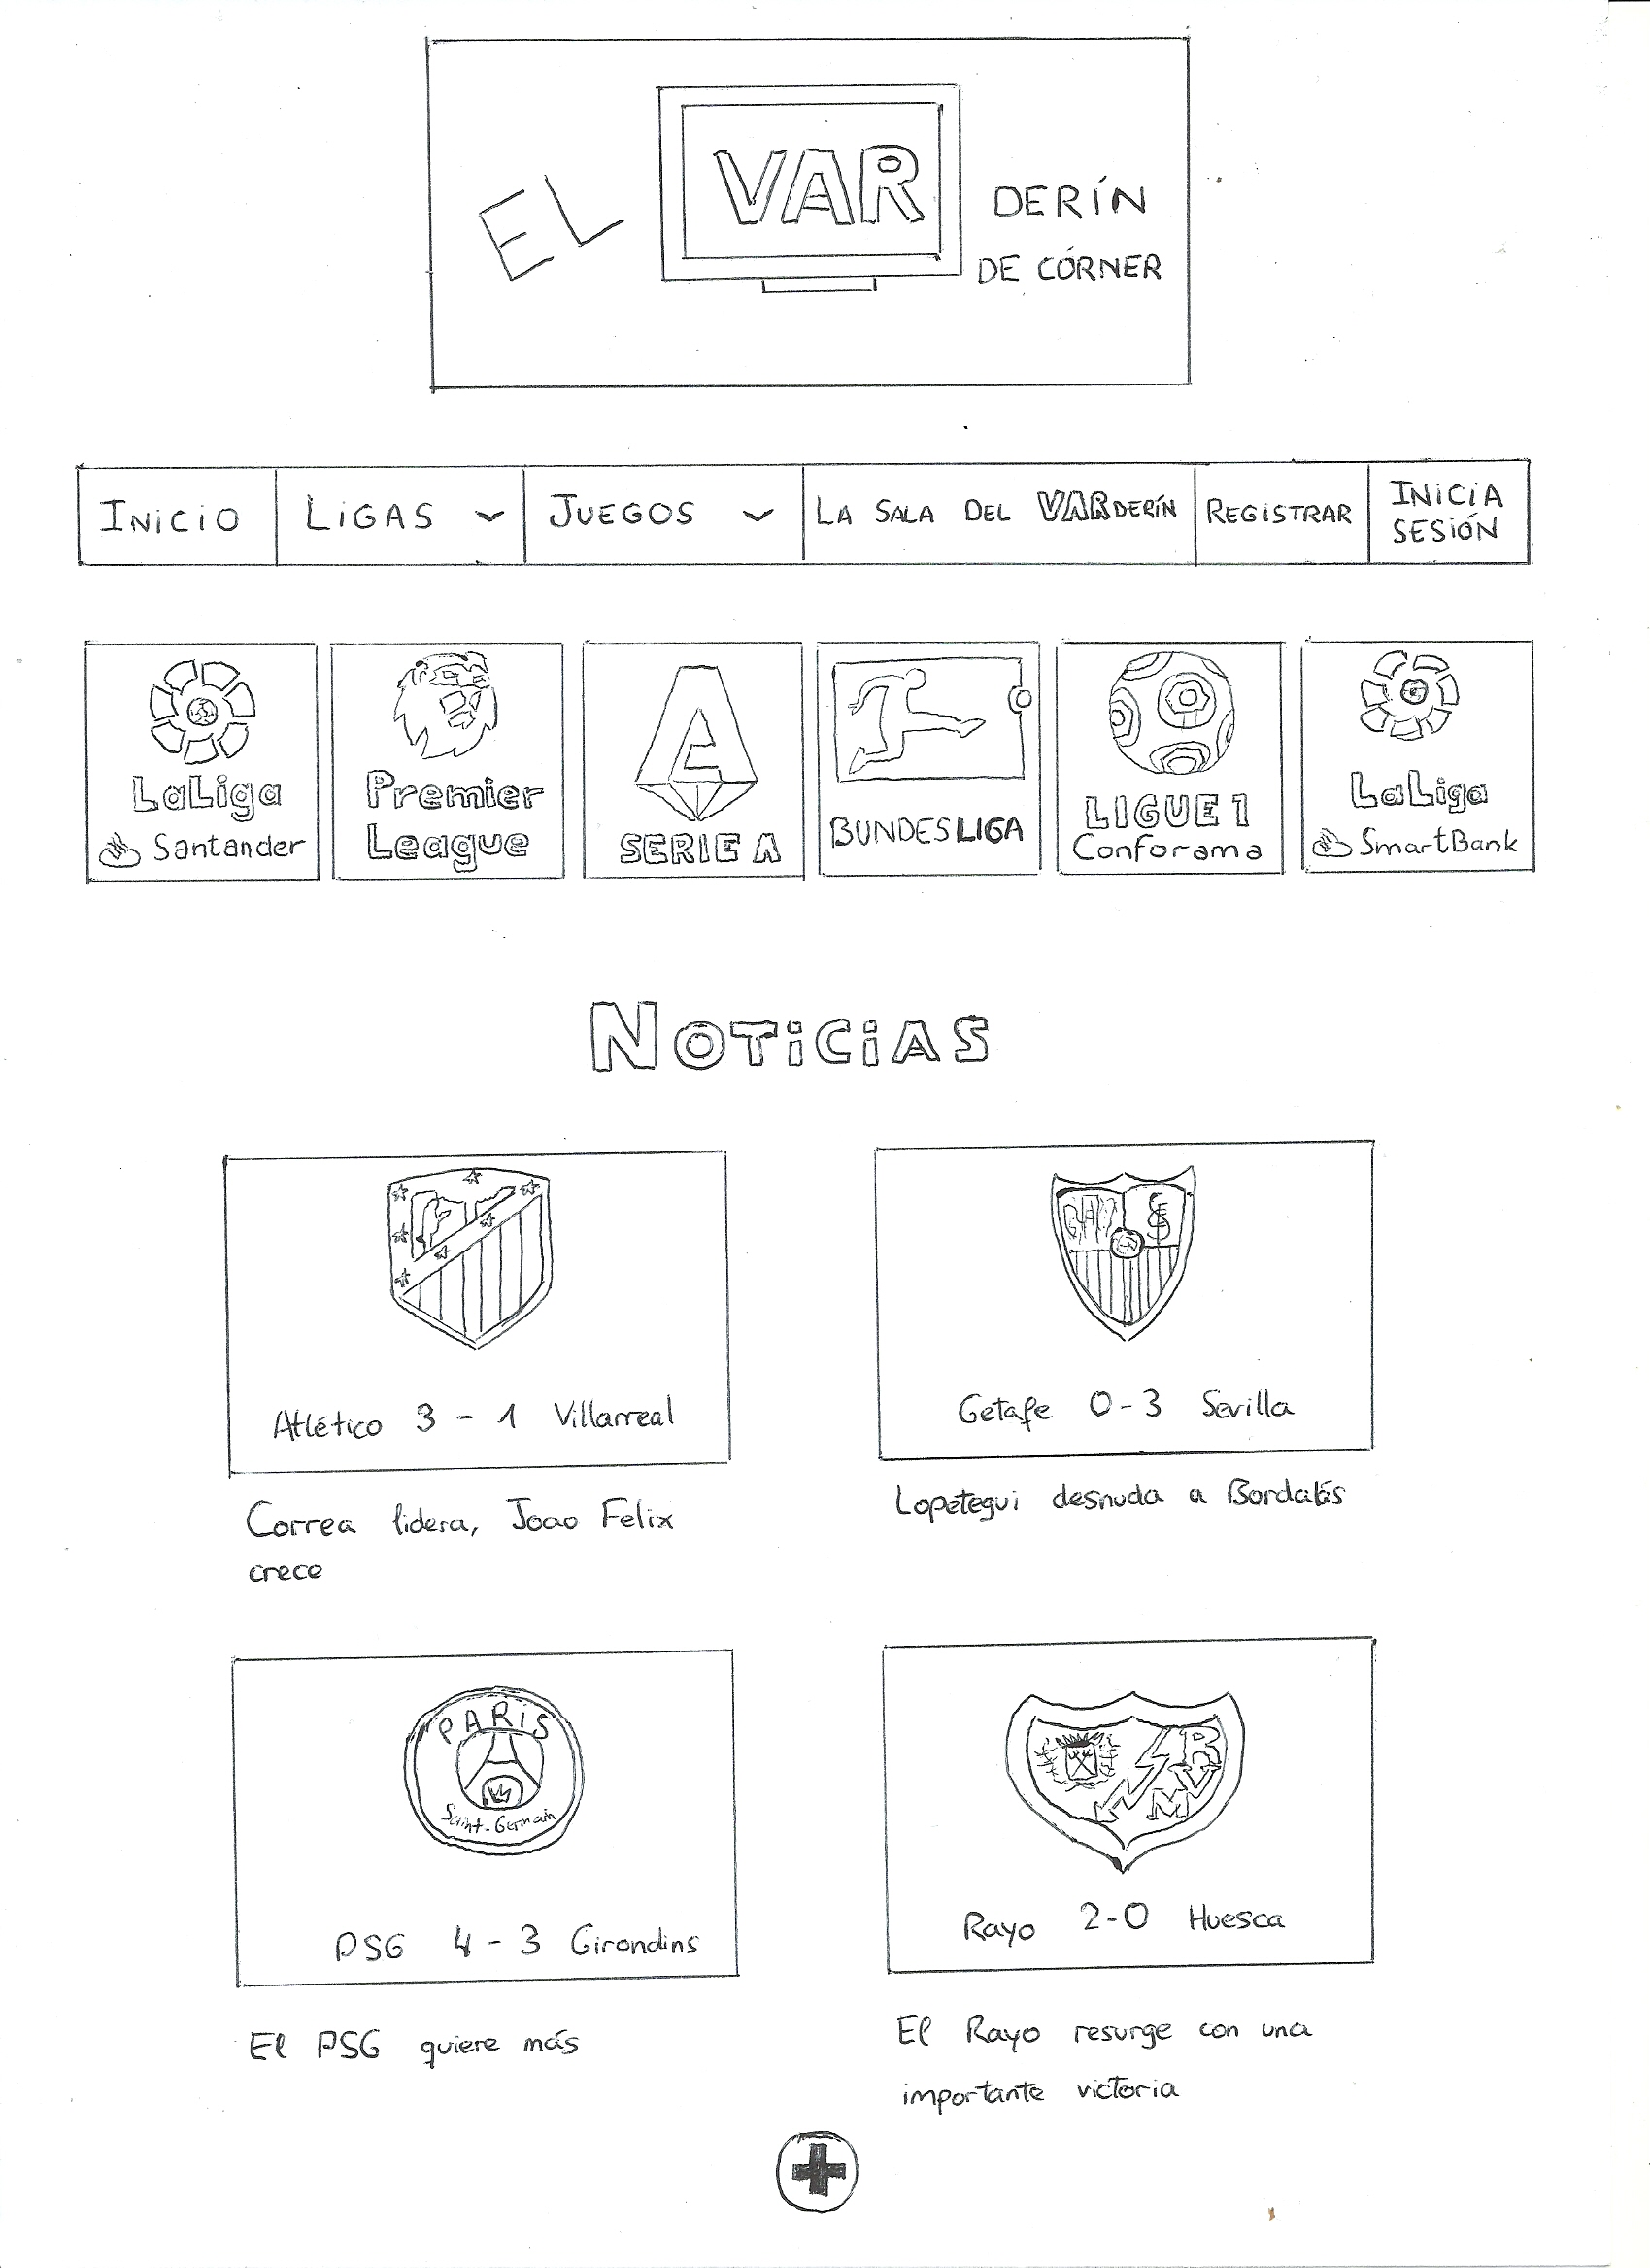 EL VAR DERÍN
DE CÓRNER
INICIO LIGAS JUEGOS LA SALA DEL VARDERÍN REGISTRAR INICIA SESIÓN
LaLiga
Santander
Premier
League
SERIE A
BUNDESLIGA
LIGUE 1
Conforama
LaLiga
SmartBank
NOTICIAS
Atlético 3 - 1 Villarreal
Correa lidera, Joao Felix
crece
Getafe 0 - 3 Sevilla
Lopetegui desnuda a Bordalás
PARIS
Saint-Germain
PSG 4 - 3 Girondins
El PSG quiere más
R
V
M
Rayo 2-0 Huesca
El Rayo resurge con una
importante victoria